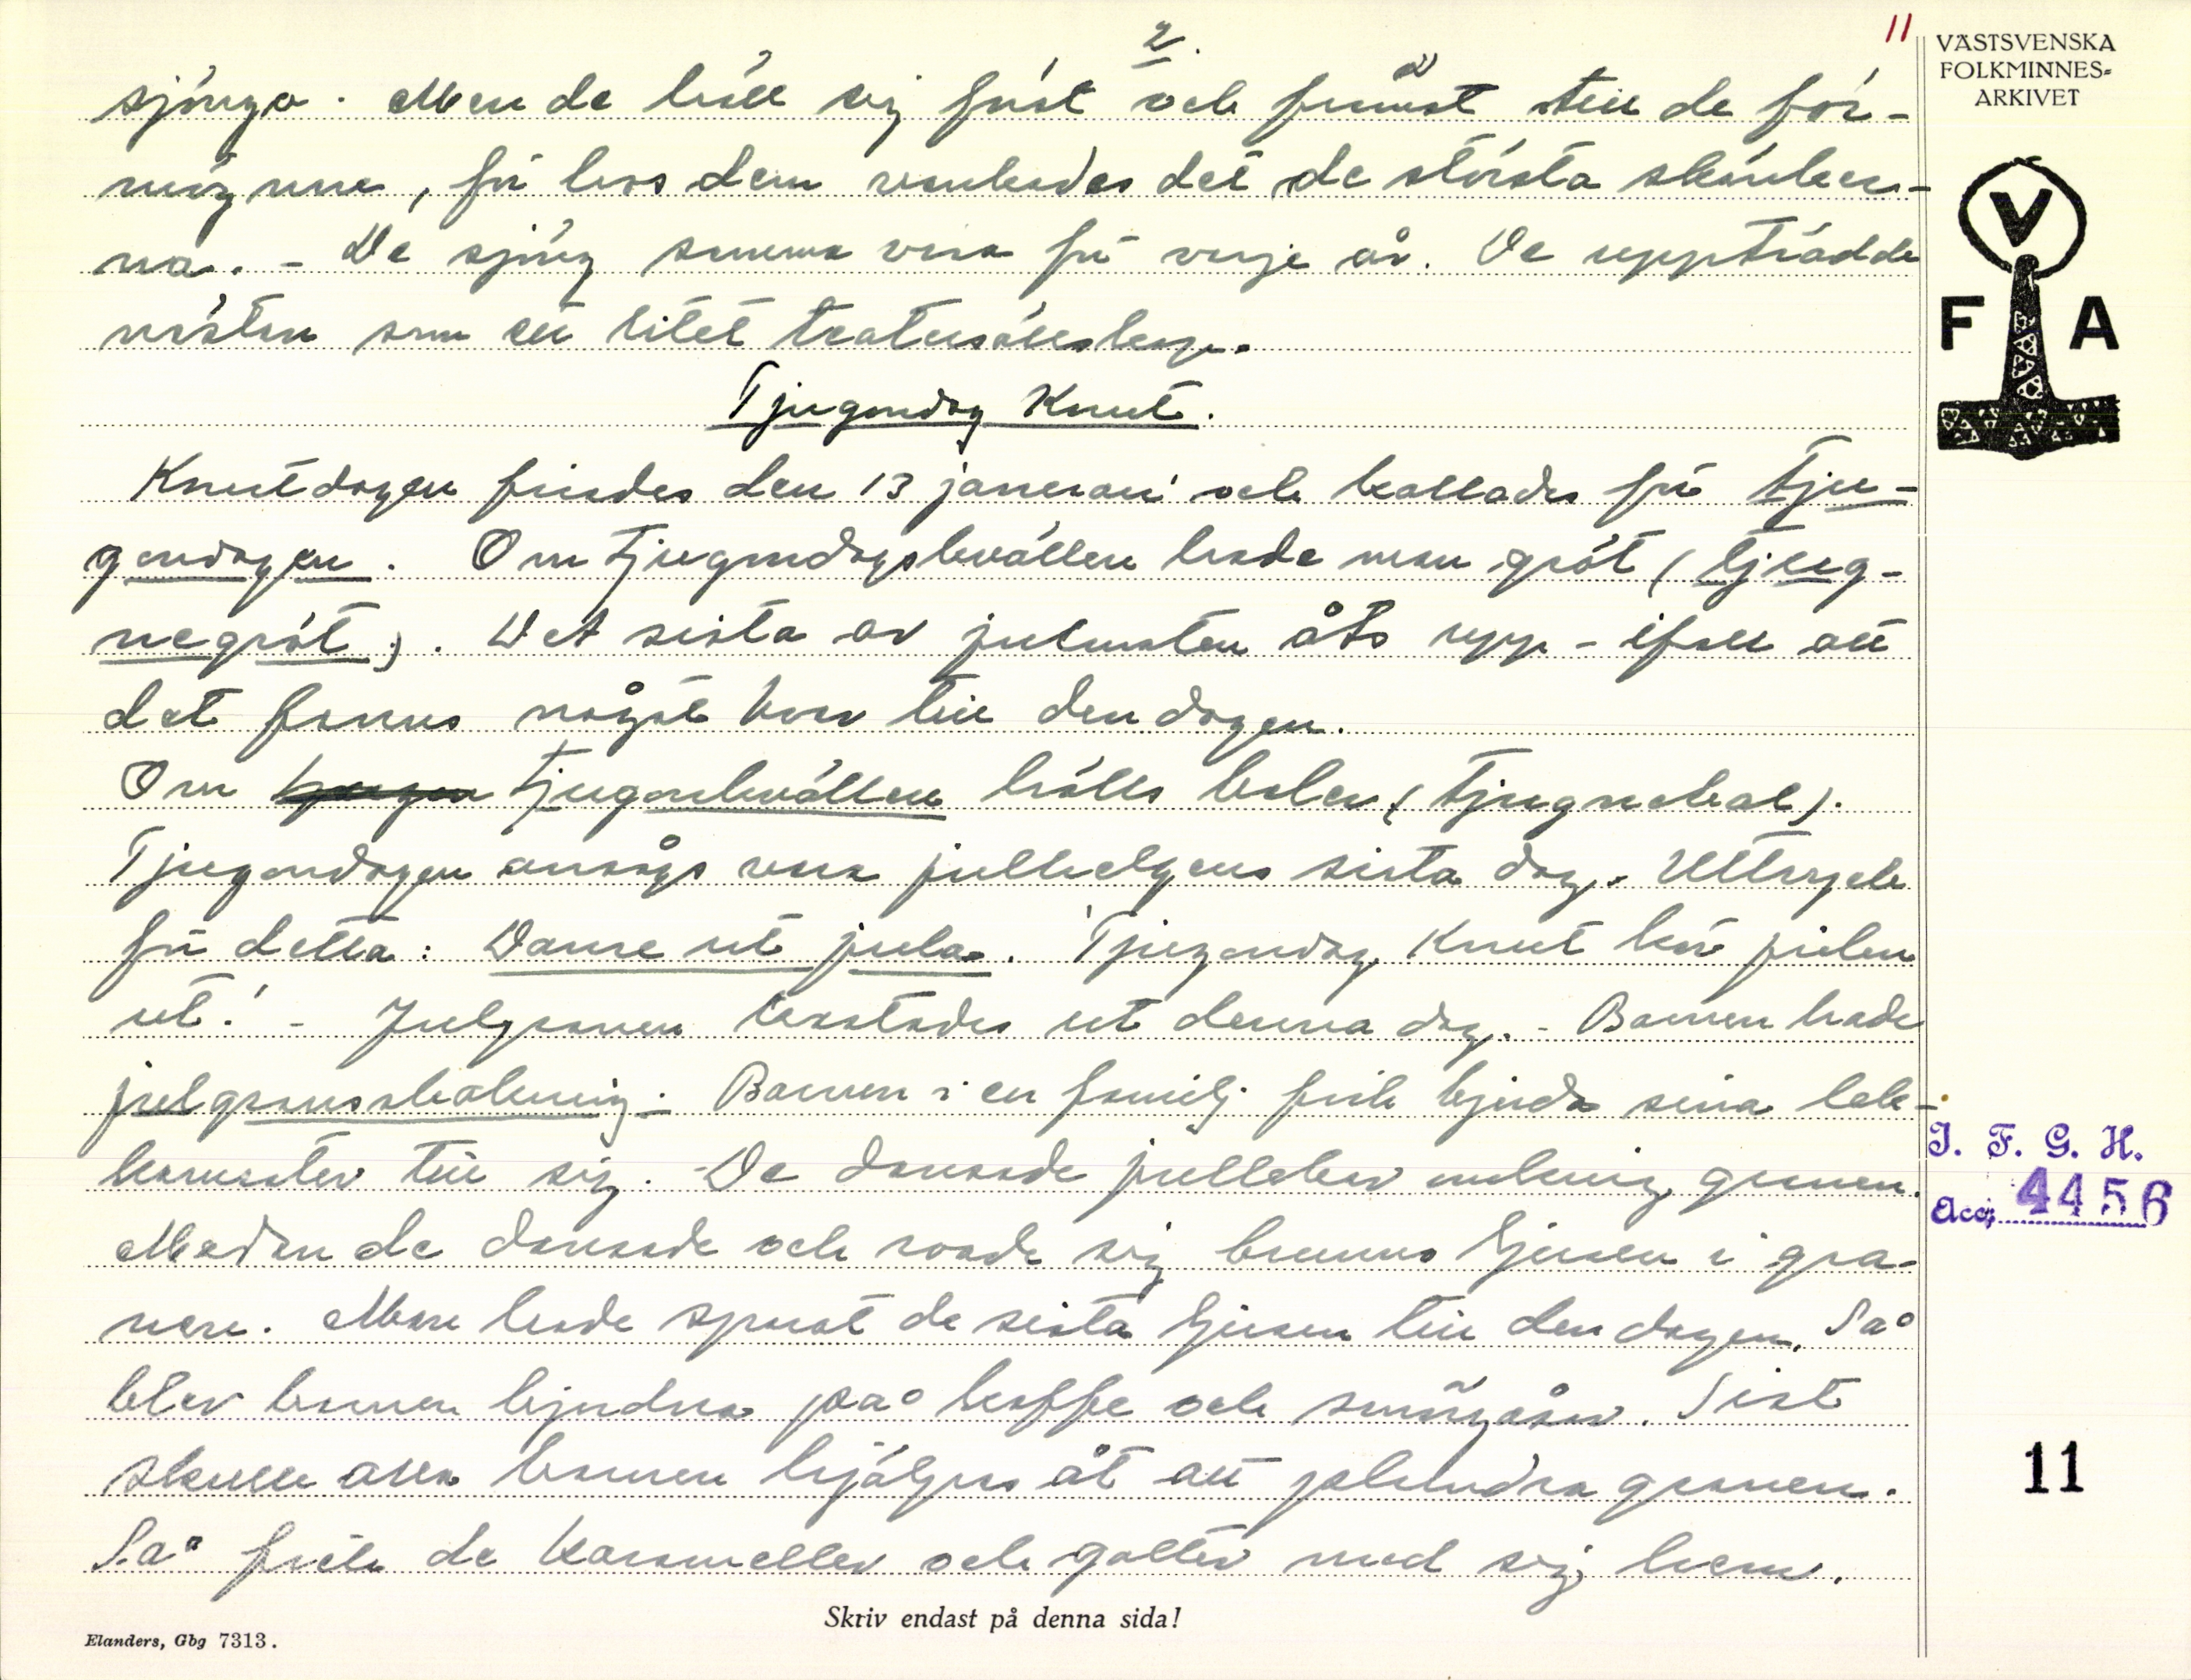 2.
11
VÄSTSVENSKA
FOLKMINNES=
ARKIVET
V
F A
sjöngo. Men de höll sig först och främst till de för-
mögnare, för hos dem vankades det de största skänker-
na. - De sjöng samma visa för varje år. De uppträdde
nästan som ett litet teatersällskap.
Tjugondag Knut.
Knutdagen firades den 13 januari och kallades för tju-
gondagen. Om tjugondagskvällen hade man gröt (tjug-
negröt). Det sista av julmaten åts upp - ifall att
det fanns något kvar till den dagen.
Om tjugonkvällen hölls baler (tjugnebal).
Tjugondagen ansågs vara julhelgens sista dag. Uttryck
för detta: Danse ut jula. Tjugondag Knut kör julen
ut! - Julgranen kastades ut denna dag. - Barnen hade
julgransskakning. Barnen i en familj fick bjuda sina lek-
kamrater till sig. - De dansade jullekar omkring granen.
Medan de dansade och roade sig brunno ljusen i gra-
nen. Man hade sparat de sista ljusen till den dagen. Så
blev barnen bjudna på kaffe och smörgåsar. Sist
skulle alla barnen hjälpas åt att plundra granen.
Så fick de karameller och gotter med sig hem.
I. F. G. H.
Acc. 4456
11
Skriv endast på denna sida!
Elanders, Gbg 7313.